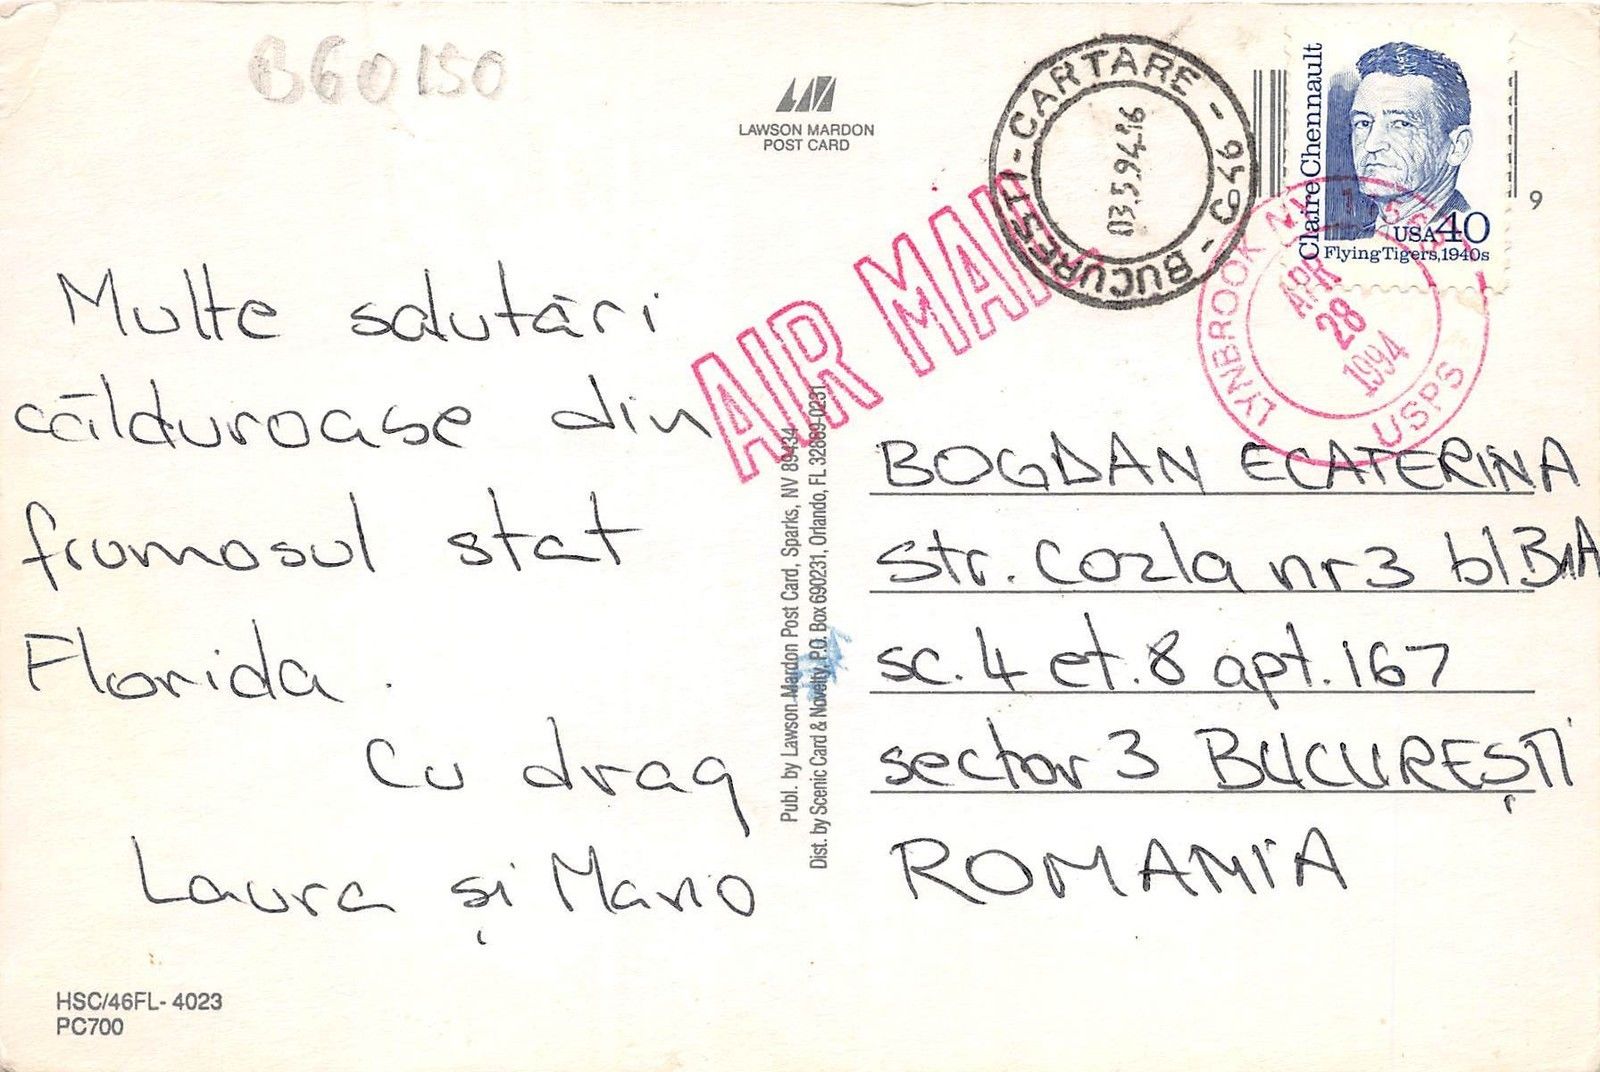 B60150
LAWSON MARDON
POST CARD
Claire Chennault
USA 40
Flying Tigers, 1940s
9
BUCURESTI - CARTARE - 946 -
03.5.94.-16
LYNBROOK NY
APR
28
1994
USPS
AIR MAIL
Multe salutări
călduroase din
frumosul stat
Florida.
Cu drag
Laura și Mario
Publ. by Lawson Mardon Post Card, Sparks, NV 89434
Dist. by Scenic Card & Novelty, P.O. Box 690231, Orlando, FL 32869-0231
BOGDAN ECATERINA
str. Cozla nr 3 bl
sc. 4 et. 8 apt. 167
sector 3 BUCUREȘTI
ROMANIA
HSC/46FL- 4023
PC700